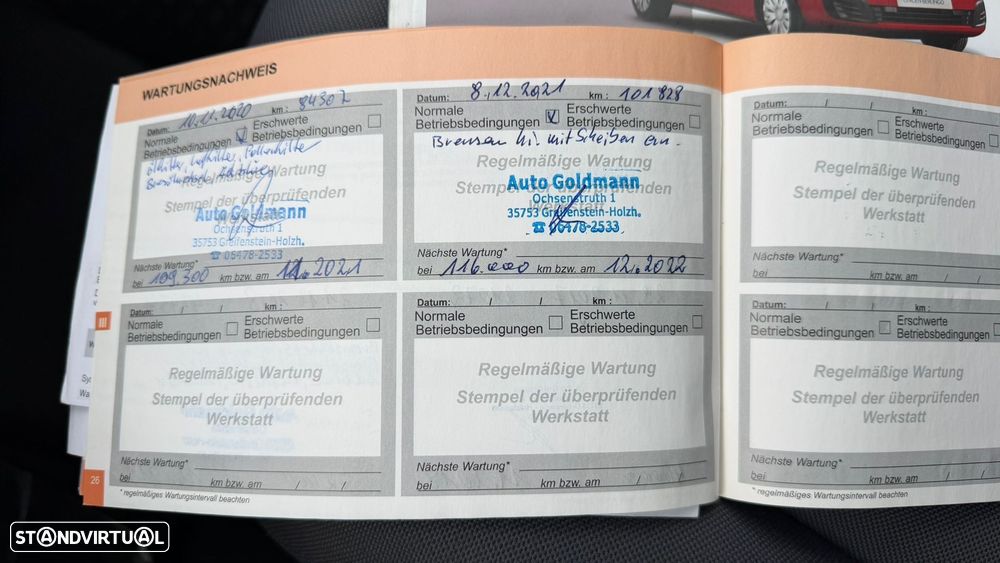 WARTUNGSNACHWEIS
Datum: 10.11.2020 km: 84307
Normale Betriebsbedingungen
Erschwerte Betriebsbedingungen
Ölfilter, Luftfilter, Pollenfilter
Regelmäßige Wartung
Stempel der überprüfenden
Werkstatt
Auto Goldmann
Ochsenstruth 1
35753 Greifenstein-Holzh.
☎ 06478-2533
Nächste Wartung*
bei 109.300 km bzw. am 2021
Datum: 8.12.2021 km: 101828
Normale Betriebsbedingungen
Erschwerte Betriebsbedingungen
Bremsen hi. mit Scheiben ern.
Regelmäßige Wartung
Stempel der überprüfenden
Werkstatt
Auto Goldmann
Ochsenstruth 1
35753 Greifenstein-Holzh.
☎ 06478-2533
Nächste Wartung*
bei 116.000 km bzw. am 12.2022
Datum: / / km:
Normale Betriebsbedingungen
Erschwerte Betriebsbedingungen
Regelmäßige Wartung
Stempel der überprüfenden
Werkstatt
Nächste Wartung*
bei km bzw. am / /
Datum: / / km :
Normale Betriebsbedingungen
Erschwerte Betriebsbedingungen
Regelmäßige Wartung
Stempel der überprüfenden
Werkstatt
Nächste Wartung*
bei km bzw. am / /
Datum: / / km :
Normale Betriebsbedingungen
Erschwerte Betriebsbedingungen
Regelmäßige Wartung
Stempel der überprüfenden
Werkstatt
Nächste Wartung*
bei km bzw. am / /
Datum: / / km :
Normale Betriebsbedingungen
Erschwerte Betriebsbedingungen
Regelmäßige Wartung
Stempel der überprüfenden
Werkstatt
Nächste Wartung*
bei km bzw. am / /
26
* regelmäßiges Wartungsintervall beachten
* regelmäßiges Wartungsintervall beachten
STANDVIRTUAL